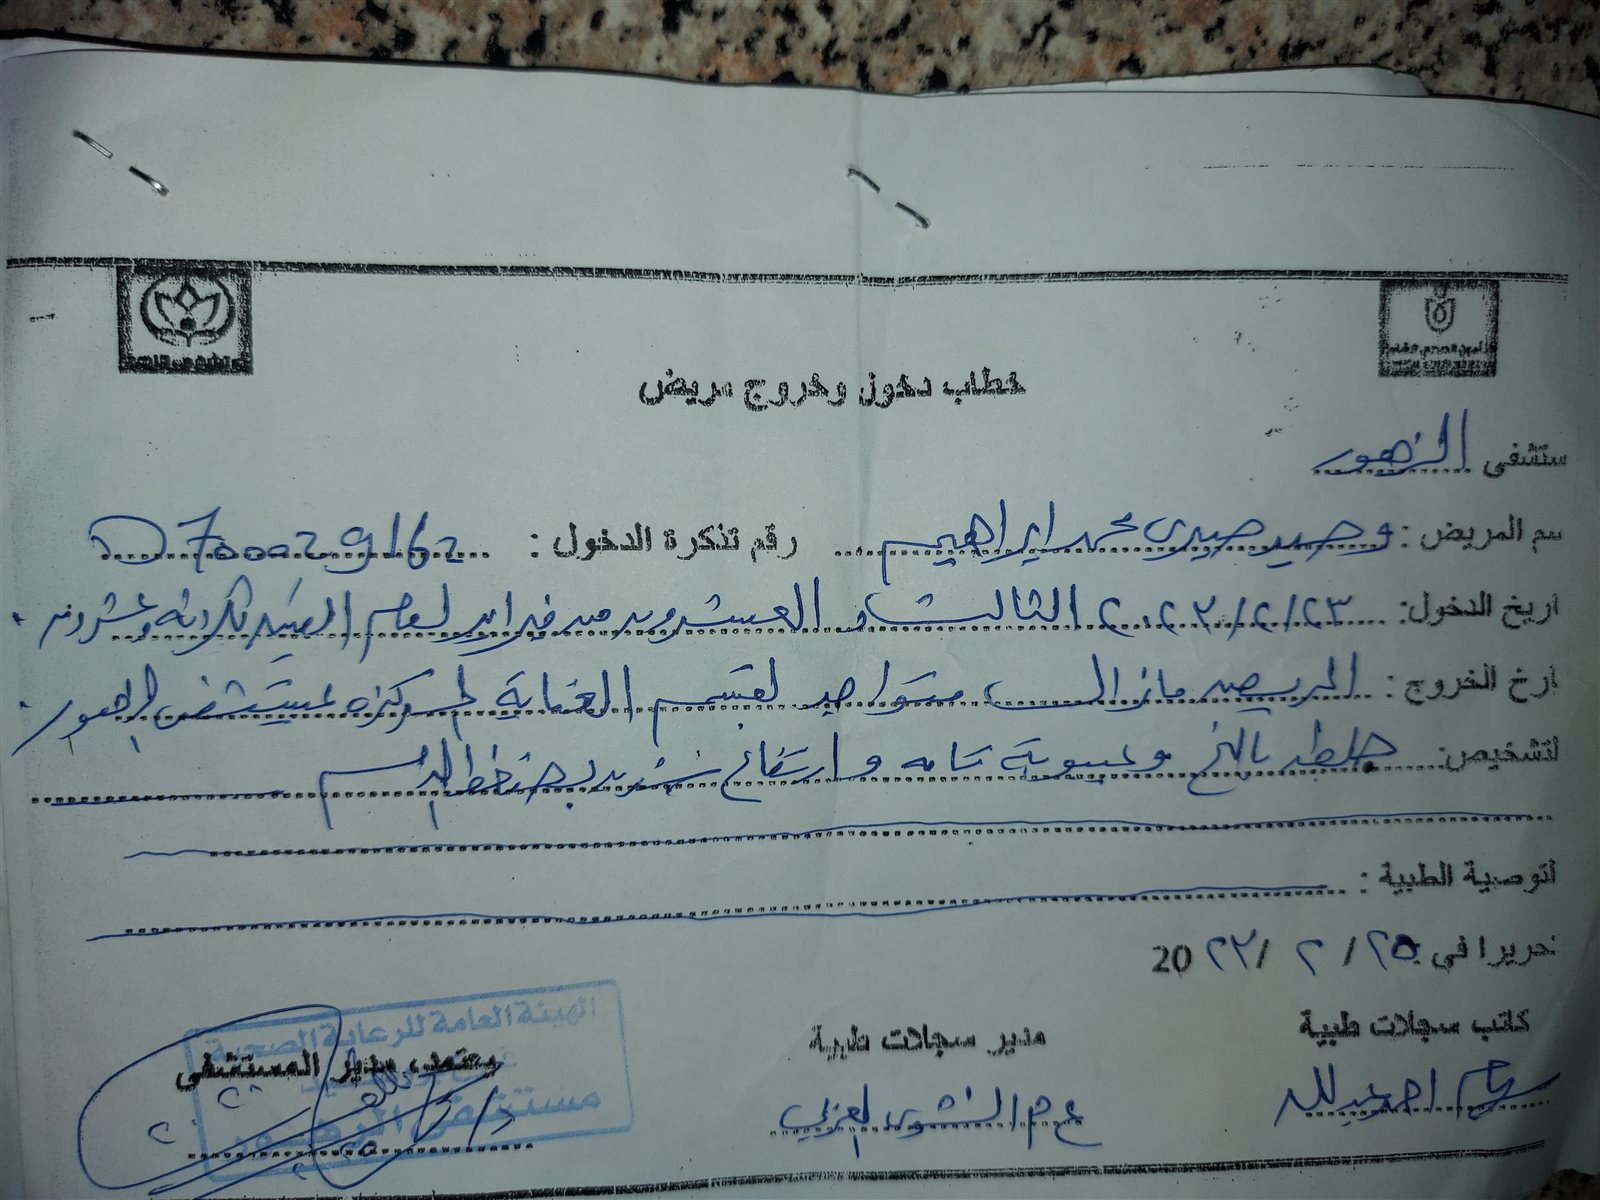 خطاب دخول وخروج مريض
ستشفى الزهور
سم المريض: وحيد صبرى محمد ابراهيم رقم تذكرة الدخول: D700029162
اريخ الدخول: ٢٠٢٣/٢/٢٣ الثالث والعشرون من فبراير لعام الفين ثلاثة وعشرون
ارخ الخروج: المريض مازال متواجد بقسم العناية المركزة بمستشفى الزهور
لتشخيص: جلطه بالمخ وغيبوبة تامه وارتفاع شديد بضغط الدم
لتوصية الطبية:
تحريرا فى ٢٥ / ٢ / ٢٣ 20
كاتب سجلات طبية مدير سجلات طبية يعتمد، مدير المستشفى
الهيئة العامة للرعاية الصحية
مستشفى الزهور